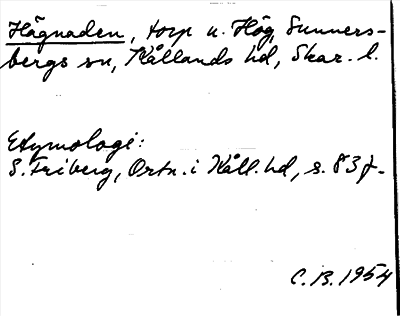 Hägnaden, torp u. Hög, Sunners-
bergs sn, Kållands hd, Skar. l.
Etymologi:
S. Friberg, Ortn. i Kåll. hd, s. 83 f.
C. B. 1954